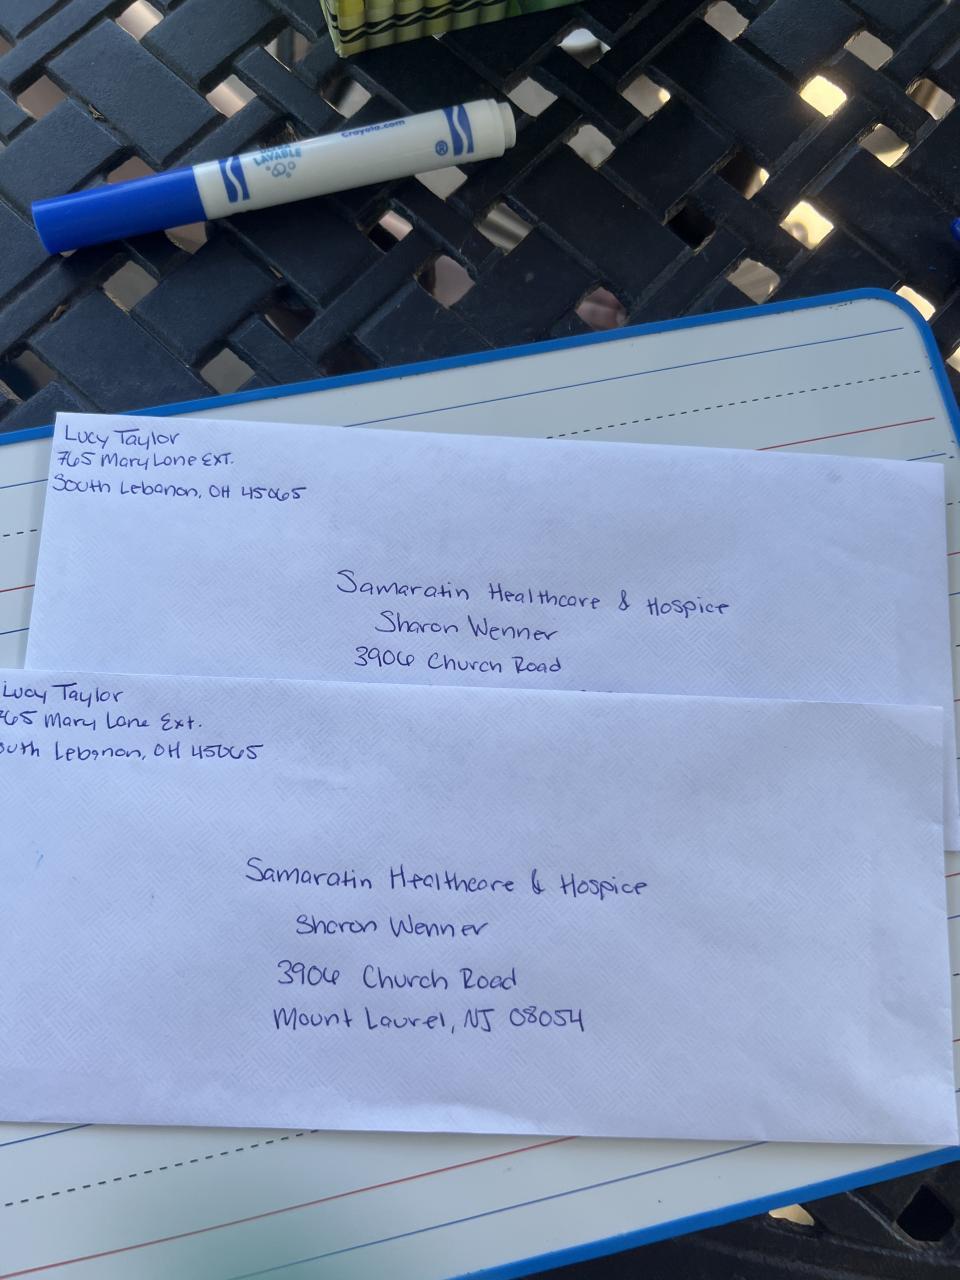 Crayola.com
®
LAVABLE
Lucy Taylor
765 Mary Lane EXT.
South Lebanon, OH 45065
Samaratin Healthcare & Hospice
Sharon Wenner
3906 Church Road
Lucy Taylor
765 Mary Lane Ext.
outh Lebanon, OH 45065
Samaratin Healthcare & Hospice
Sharon Wenner
3906 Church Road
Mount Laurel, NJ 08054